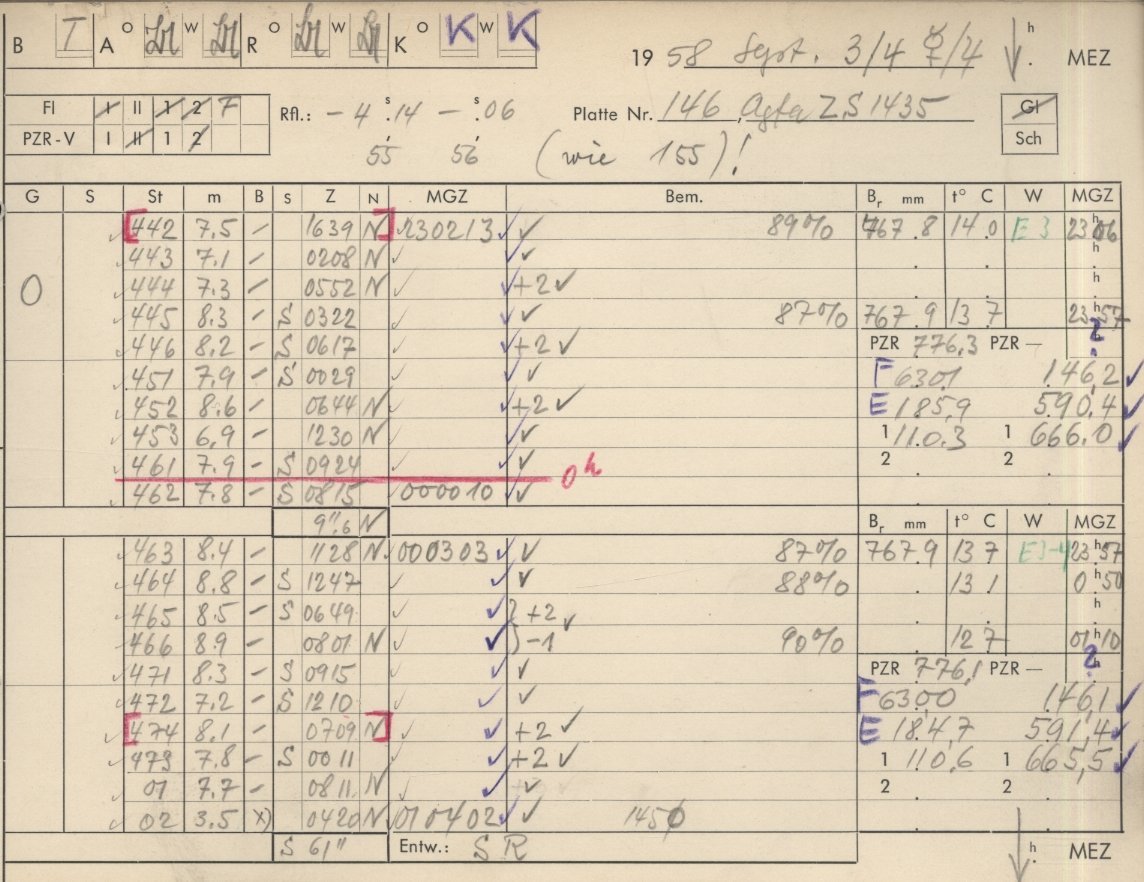 B T A O W R O W K O K W K 19 58 Sept. 3/4 ☿/♃ h . MEZ
Fl I II 1 2 F Rfl.: - 4 s.14 - s.06 Platte Nr. 146, Agfa ZS 1435 Gl
PZR-V I II 1 2 55 56 (wie 155)! Sch
G S St m B S Z N MGZ Bem. Br mm t° C W MGZ
[442 7.5 - 1639 N] 230213 ✓ ✓ 89% 767.8 14.0 E 3 23h06
443 7.1 - 0208 N ✓ ✓ ✓ h
0 444 7.3 - 0552 N ✓ ✓ +2 ✓ h
445 8.3 - S 0322 ✓ ✓ ✓ 87% 767.9 13 7 23h57
446 8.2 - S 0617 ✓ +2 ✓ PZR 776,3 PZR — ?
451 7.9 - S 0029 ✓ ✓ ✓ F 6301 146,2 ✓
452 8.6 - 0644 N ✓ +2 ✓ E 185,9 590,4 ✓
453 6,9 - 1230 N ✓ ✓ 1 110.3 1 666.0 ✓
461 7.9 - S 0924 ✓ ✓ 0h 2 . 2 .
462 7.8 - S 0815 000010 ✓ ✓
9",6 N Br mm t° C W MGZ
463 8.4 - 1128 N 000303 ✓ ✓ 87% 767.9 13 7 E3-4 23h57
464 8.8 - S 1247 ✓ ✓ ✓ 88% 13.1 0h50
465 8.5 - S 0649 ✓ ✓ } +2 ✓ h
466 8.9 - 0801 N ✓ ✓ } -1 90% 12 7 01h10
471 8.3 - S 0915 ✓ ✓ ✓ PZR 776,1 PZR — ? h
472 7.2 - S 1210 ✓ ✓ ✓ F 6300 146,1 ✓
[474 8.1 - 0709 N] ✓ ✓ +2 ✓ E 184,7 591,4 ✓
473 7.8 - S 0011 ✓ ✓ +2 ✓ 1 110,6 1 665,5 ✓
01 7.7 - 0811 N ✓ ✓ 2 . 2 .
02 3.5 x) 0420 N 010402 ✓ ✓ 1450
S 61" Entw.: S R h . MEZ